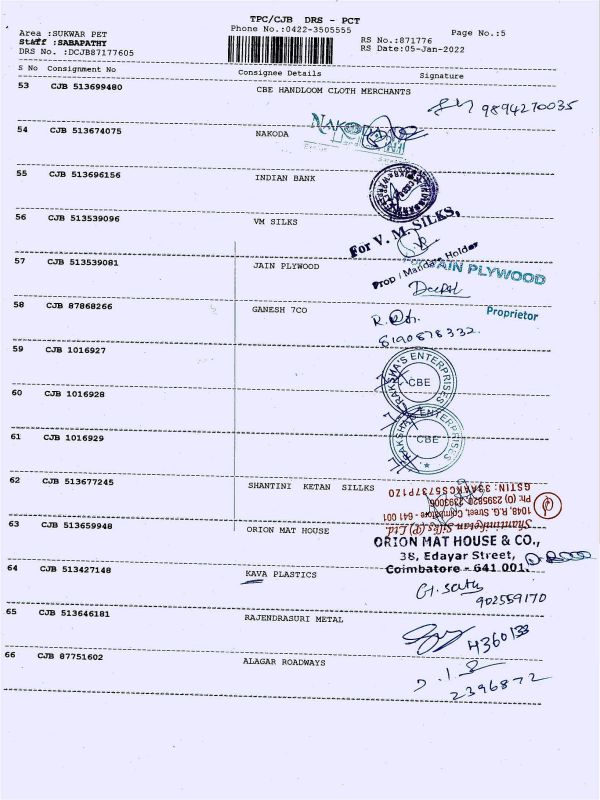 TPC/CJB DRS - PCT
Area :SUKWAR PET Phone No.:0422-3505555 Page No.:5
Staff :SABAPATHY RS No.:871776
DRS No. :DCJB87177605 RS Date:05-Jan-2022
S No Consignment No Consignee Details Signature
53 CJB 513699480 CBE HANDLOOM CLOTH MERCHANTS
9894270035
54 CJB 513674075 NAKODA
NAKODA
55 CJB 513696156 INDIAN BANK
56 CJB 513539096 VM SILKS
For V. M. SILKS,
Prop / Manda Holder
57 CJB 513539081 JAIN PLYWOOD
JAIN PLYWOOD
Deepak
Proprietor
58 CJB 87868266 GANESH 7CO
8190878332
59 CJB 1016927
RAKSHA'S ENTERPRISES
CBE
60 CJB 1016928
61 CJB 1016929
RAKSHA'S ENTERPRISES
CBE
62 CJB 513677245 SHANTINI KETAN SILLKS
Shantiniketan Silks (P) Ltd.
1048, R.G. Street, Coimbatore - 641 001
Ph: (0) 2395820, 2393006
63 CJB 513659948 ORION MAT HOUSE
ORION MAT HOUSE & CO.,
38, Edayar Street,
Coimbatore - 641 001.
64 CJB 513427148 KAVA PLASTICS
G. Satu
902559170
65 CJB 513646181 RAJENDRASURI METAL
4360133
66 CJB 87751602 ALAGAR ROADWAYS
2396872